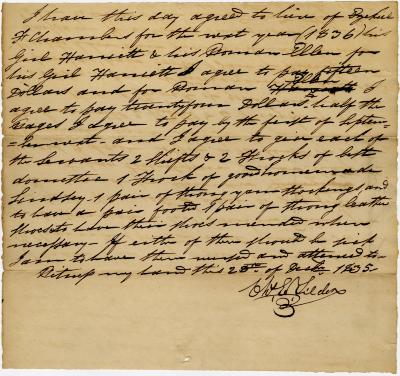 I have this day agreed to hire of Ezekiel
F Chambers for the next year (1836) his
Girl Harriett & his Woman Ellen for
his Girl Harriett I agree to pay fifteen
Dollars and for Woman Ellen I
agree to pay twentyfour Dollars. half the
Wages I agree to pay by the first of Septem-
-ber next - and I agree to give each of
the Servants 2 Shifts & 2 Frocks of best
domestic 1 Frock of good homemade
Lindsey 1 pair of strong yarn stockings and
to have a pair 1 pair of strong leather
Shoes to have their shoes mended when
necessary - If either of them should be sick
I am to have them nursed and attened to -
Witness my hand this 28th of 1835
Tilden